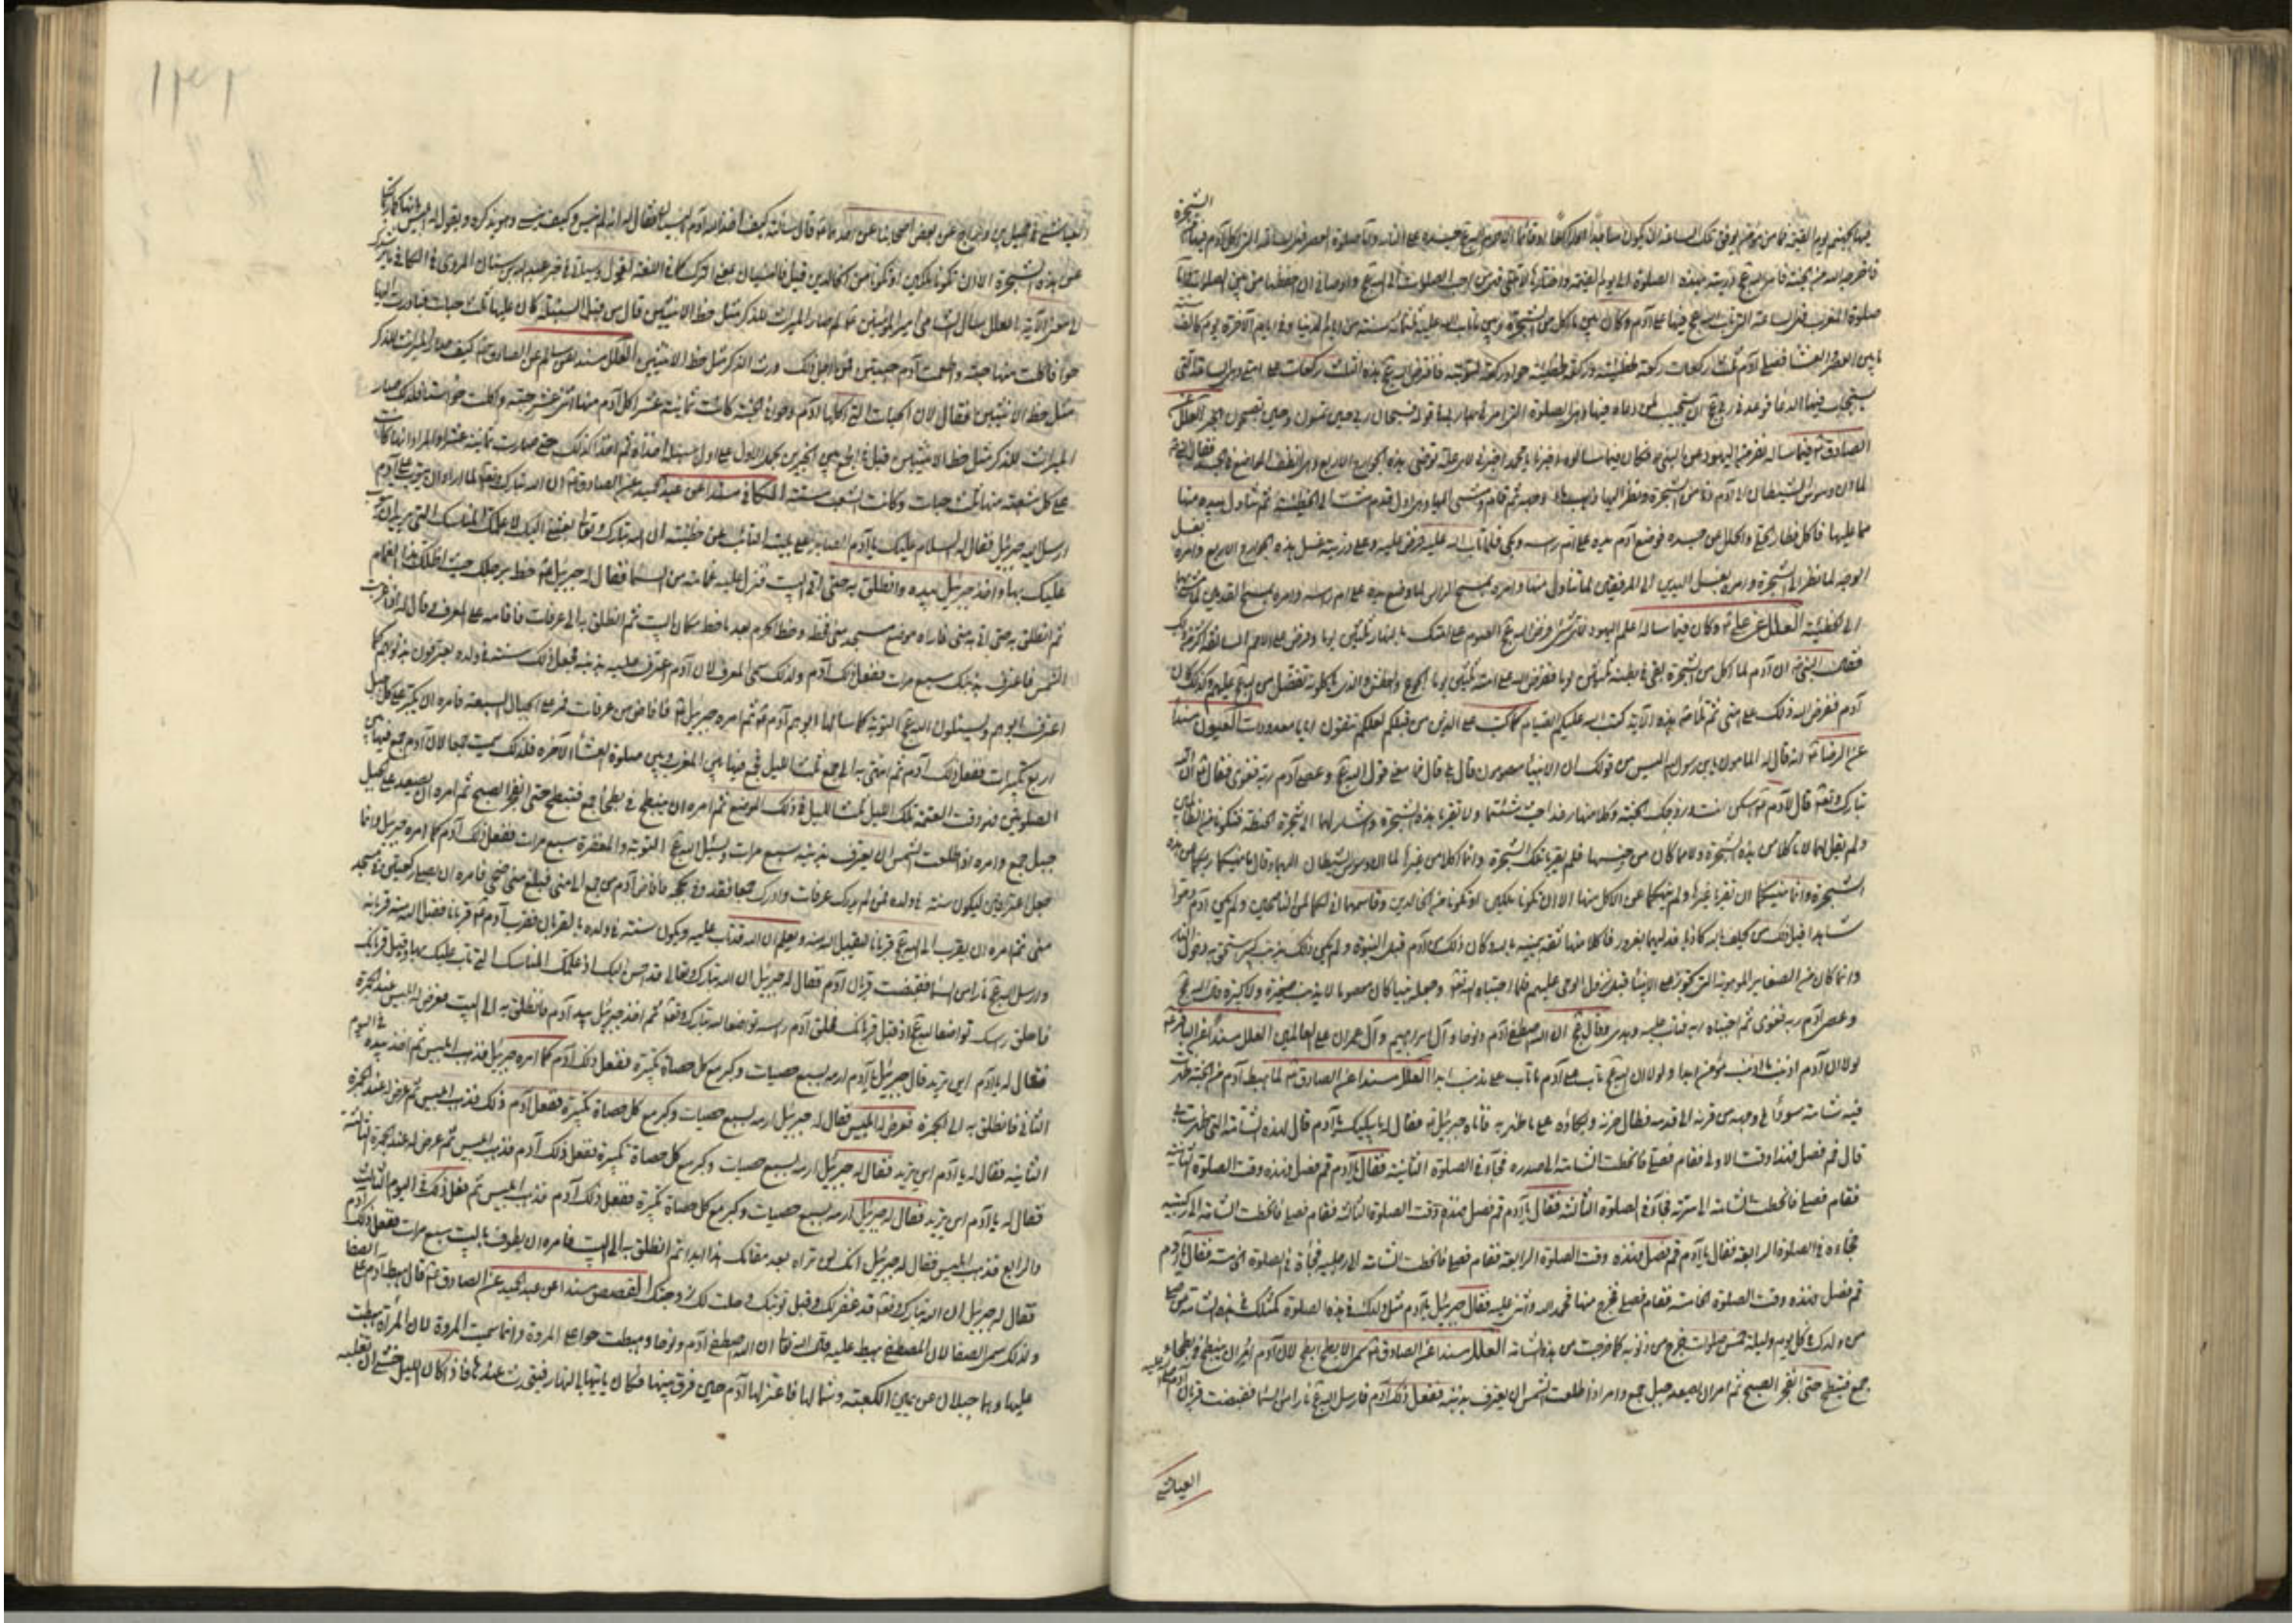 الشجرة
فيها جهنم يوم القيمة فما من مؤمن يوفق تلك الساعة ان يكون ساجدا او راكعا او قائما الا حرم الله عز وجل جسده على النار واما صلوة العصر فهي الساعة التي اكل آدم فيها من
فاخرجه الله من الجنة فامر الله ذريته بهذه الصلوة الى يوم القيمة واختارها لامتي فهي من احب الصلوات الى الله عز وجل واوصاني ان احفظها من بين الصلوات واما
صلوة المغرب فهي الساعة التي تاب الله فيها على آدم وكان بين ما اكل من الشجرة وبين ما تاب الله عليه ثلثمائة سنة من ايام الدنيا وفي ايام الآخرة يوم كالف سنة
ما بين العصر والعشا فصلى آدم ثلث ركعات ركعة لخطيئته وركعة لخطيئة حوا وركعة لتوبته فافترض الله هذه الثلث ركعات على امتي وهي الساعة التي
يستجاب فيها الدعا فوعدني ربي ان يستجيب لمن دعاه فيها وهذه الصلوة التي امرني بها ربي في قوله فسبحان الله حين تمسون وحين تصبحون الخبر العلل
الصادق فيما سأله نفر من اليهود عن النبي فكان فيما سألوه اخبرنا يا محمد لاي علة توضى هذه الجوارح الاربع وهي انظف المواضع في الجسد فقال النبي
لما ان وسوس الشيطان الى آدم دنا من الشجرة ونظر اليها ذهب ماء وجهه ثم قام ومشى اليها وهي اول قدم مشت الى الخطيئة ثم تناول بيده منها
مما عليها فاكل فطار الحلي والحلل عن جسده فوضع آدم يده على ام رأسه وبكى فلما تاب الله عليه فرض عليه وعلى ذريته غسل هذه الجوارح الاربع وامره بغسل
الوجه لما نظر الى الشجرة وامره بغسل اليدين الى المرفقين لما تناول منها وامره بمسح الرأس لما وضع يده على ام رأسه وامره بمسح القدمين لما مشى بها
الى الخطيئة العلل عن علي وكان فيما سأله اعلم اليهود لاي شيء فرض الله الصوم على امتك بالنهار ثلثين يوما وفرض على الامم السالفة اكثر من ذلك
فقال النبي ان آدم لما اكل من الشجرة بقي في بطنه ثلثين يوما ففرض الله على امته ثلثين يوما الجوع والعطش والذي ياكلونه تفضل من الله عليهم وكذلك كان
آدم ففرض الله ذلك على امتي ثم تلا هذه الآية كتب عليكم الصيام كما كتب على الذين من قبلكم لعلكم تتقون اياما معدودات العيون مسندا
عن الرضا انه قال له المامون يابن رسول الله اليس من قولك ان الانبيا معصومون قال بلى قال فما معنى قول الله وعصى آدم ربه فغوى فقال ان الله
تبارك وتعالى قال لآدم اسكن انت وزوجك الجنة وكلا منها رغدا حيث شئتما ولا تقربا هذه الشجرة واشار لهما الى شجرة الحنطة فتكونا من الظالمين
ولم يقل لهما لا تاكلا من هذه الشجرة ولا مما كان من جنسها فلم يقربا تلك الشجرة وانما اكلا من غيرها لما ان وسوس الشيطان اليهما وقال ما نهيكما ربكما عن هذه
الشجرة وانما نهيكما ان تقربا غيرها ولم ينهكما عن الاكل منها الا ان تكونا ملكين او تكونا من الخالدين وقاسمهما اني لكما لمن الناصحين ولم يكن آدم وحوا
شاهدا قبل ذلك من يحلف بالله كاذبا فدليهما بغرور فاكلا منها ثقة بيمينه بالله وكان ذلك من آدم قبل النبوة ولم يكن ذلك بذنب كبير استحق به دخول النار
وانما كان من الصغاير الموهوبة التي تجوز على الانبيا قبل نزول الوحي عليهم فلما اجتباه الله تعالى وجعله نبيا كان معصوما لا يذنب صغيرة ولا كبيرة قال الله
وعصى آدم ربه فغوى ثم اجتباه ربه فتاب عليه وهدى وقال ان الله اصطفى آدم ونوحا وآل ابراهيم وآل عمران على العالمين العلل مسندا عن الباقر
لولا ان آدم اذنب ما اذنب مؤمن ابدا ولولا ان الله تاب على آدم ما تاب على مذنب ابدا العلل مسندا عن الصادق لما اهبط آدم من الجنة ظهرت
فيه شامة سودا في وجهه من قرنه الى قدمه فطال حزنه وبكاؤه على ما ظهر به فاتاه جبرئيل فقال له ما يبكيك يا آدم قال لهذه الشامة التي ظهرت بي
قال قم فصل فهذا وقت الاولى فقام فصلى فانحطت الشامة الى صدره فجاءه في الصلوة الثانية فقال يا آدم قم فصل فهذه وقت الصلوة الثانية
فقام فصلى فانحطت الشامة الى سرته فجاءه في الصلوة الثالثة فقال يا آدم قم فصل فهذه وقت الصلوة الثالثة فقام فصلى فانحطت الشامة الى ركبتيه
فجاءه في الصلوة الرابعة فقال يا آدم قم فصل فهذه وقت الصلوة الرابعة فقام فصلى فانحطت الشامة الى رجليه فجاءه في الصلوة الخامسة فقال يا آدم
قم فصل فهذه وقت الصلوة الخامسة فقام فصلى فخرج منها فحمد الله واثنى عليه فقال جبرئيل يا آدم مثل ولدك في هذه الصلوة كمثلك في هذه الشامة من صلى
من ولدك في كل يوم وليلة خمس صلوات خرج من ذنوبه كما خرجت من هذه الشامة العلل مسندا عن الصادق سمي الابطح ابطح لان آدم امر ان ينبطح في بطحاء
جمع فتبطح حتى انفجر الصبح ثم امر ان يصعد جبل جمع وامر اذا طلعت الشمس ان يعترف بذنبه ففعل ذلك آدم فارسل الله نارا من السما فقبضت قربان آدم
العياشي
١٣٢
العياشي عن جميل بن دراج عن بعض اصحابنا عن احدهما قال سألته كيف اخذ الله آدم بالنسيان فقال انه لم ينس وكيف ينسى وهو يذكره ويقول له ابليس ما نهاكما ربكما
عن هذه الشجرة الا ان تكونا ملكين او تكونا من الخالدين
العلل سأل الشامي امير المؤمنين لم صار الميراث للذكر مثل حظ الانثيين قال من قبل السنبلة كان عليها ثلث حبات فبادرت اليها
حوا فاكلت منها حبة واطعمت آدم حبتين فمن اجل ذلك ورث الذكر مثل حظ الانثيين العلل مسندا عن الصادق كيف صار الميراث للذكر
مثل حظ الانثيين فقال لان الحبات التي اكلها آدم وحوا في الجنة كانت ثمانية عشر اكل آدم منها اثني عشر حبة واكلت حوا ستا فلذلك صار
الميراث للذكر مثل حظ الانثيين
على كل شعبة منها ثلث حبات وكانت الشعب ستة الكافي مسندا عن عبد الحميد عن الصادق ان الله تبارك وتعالى لما اراد ان يتوب على آدم
ارسل اليه جبرئيل فقال له السلام عليك يا آدم الصابر على بليته التائب عن خطيئته ان الله تبارك وتعالى بعثني اليك لاعلمك المناسك التي يريد ان يتوب
عليك بها واخذ جبرئيل بيده وانطلق به حتى اتى البيت فنزل عليه غمامة من السما فقال له جبرئيل خط برجلك حيث اظلك هذا الغمام
ثم انطلق به حتى اتى به منى فاراه موضع مسجد منى فخطه وخط الحرم بعد ما خط مكان البيت ثم انطلق به الى عرفات فاقامه على المعرف وقال له اذا غربت
الشمس فاعترف بذنبك سبع مرات ففعل ذلك آدم ولذلك سمي المعرف لان آدم اعترف عليه بذنبه فجعل ذلك سنة في ولده يعترفون بذنوبهم كما
اعترف ابوهم ويسئلون الله التوبة كما سألها ابوهم آدم ثم امره جبرئيل فافاض من عرفات فمر على الجبال السبعة فامره ان يكبر على كل جبل
اربع تكبيرات ففعل ذلك آدم ثم انتهى به الى جمع ثلث الليل فجمع فيها بين المغرب وبين صلوة العشا الآخرة فلذلك سميت جمعا لان آدم جمع فيها بين
الصلوتين فوقت العتمة تلك الليل ثلث الليل في ذلك الموضع ثم امره ان ينبطح في بطحا جمع فتبطح حتى انفجر الصبح ثم امره ان يصعد على الجبل
جبل جمع وامره اذا طلعت الشمس ان يعترف بذنبه سبع مرات ويسئل الله التوبة والمغفرة سبع مرات ففعل ذلك آدم كما امره جبرئيل وانما
جعل اعترافين ليكون سنة في ولده فمن لم يدرك عرفات وادرك جمعا فقد وفى بحجه فافاض آدم من جمع الى منى فبلغ منى ضحى فامره ان يصلي ركعتين في مسجد
منى ثم امره ان يقرب الى الله قربانا ليقبل الله منه ويعلم ان الله قد تاب عليه ويكون سنة في ولده بالقربان فقرب آدم قربانا فقبل الله منه قربانه
وارسل الله نارا من السما فقبضت قربان آدم فقال له جبرئيل ان الله تبارك وتعالى قد احسن اليك اذ علمك المناسك التي تاب عليك بها وقبل قربانك
فاحلق رأسك تواضعا لله اذ قبل قربانك فحلق آدم رأسه تواضعا لله تبارك وتعالى ثم اخذ جبرئيل بيد آدم فانطلق به الى البيت فعرض له ابليس عند الجمرة
فقال له يا آدم اين تريد قال جبرئيل يا آدم ارمه بسبع حصيات وكبر مع كل حصاة تكبيرة ففعل ذلك آدم كما امره جبرئيل فذهب ابليس ثم اخذ بيده في اليوم
الثاني فانطلق به الى الجمرة فعرض له ابليس فقال له جبرئيل ارمه بسبع حصيات وكبر مع كل حصاة تكبيرة ففعل آدم ذلك فذهب ابليس ثم عرض له عند الجمرة
الثانية فقال له يا آدم اين تريد فقال له جبرئيل ارمه بسبع حصيات وكبر مع كل حصاة تكبيرة ففعل ذلك آدم فذهب ابليس ثم عرض له عند الجمرة الثالثة
فقال له يا آدم اين تريد فقال له جبرئيل ارمه بسبع حصيات وكبر مع كل حصاة تكبيرة ففعل ذلك آدم فذهب ابليس ثم فعل ذلك في اليوم الثالث
والرابع فذهب ابليس فقال له جبرئيل انك لن تراه بعد مقامك هذا ابدا ثم انطلق به الى البيت فامره ان يطوف بالبيت سبع مرات ففعل ذلك آدم
فقال له جبرئيل ان الله تبارك وتعالى قد غفر لك وقبل توبتك وحلت لك زوجتك القصص مسندا عن عبد الحميد عن الصادق قال اهبط آدم على الصفا
ولذلك سمي الصفا لان المصطفى هبط عليه قال الله تعالى ان الله اصطفى آدم ونوحا وهبطت حوا على المروة وانما سميت المروة لان المرأة هبطت
عليها وهما جبلان عن يمين الكعبة وشمالها فاعتزلها آدم حين فرق بينهما فكان ياتيها بالنهار فيتحدث عندها فاذا كان الليل خشي ان تغلبه